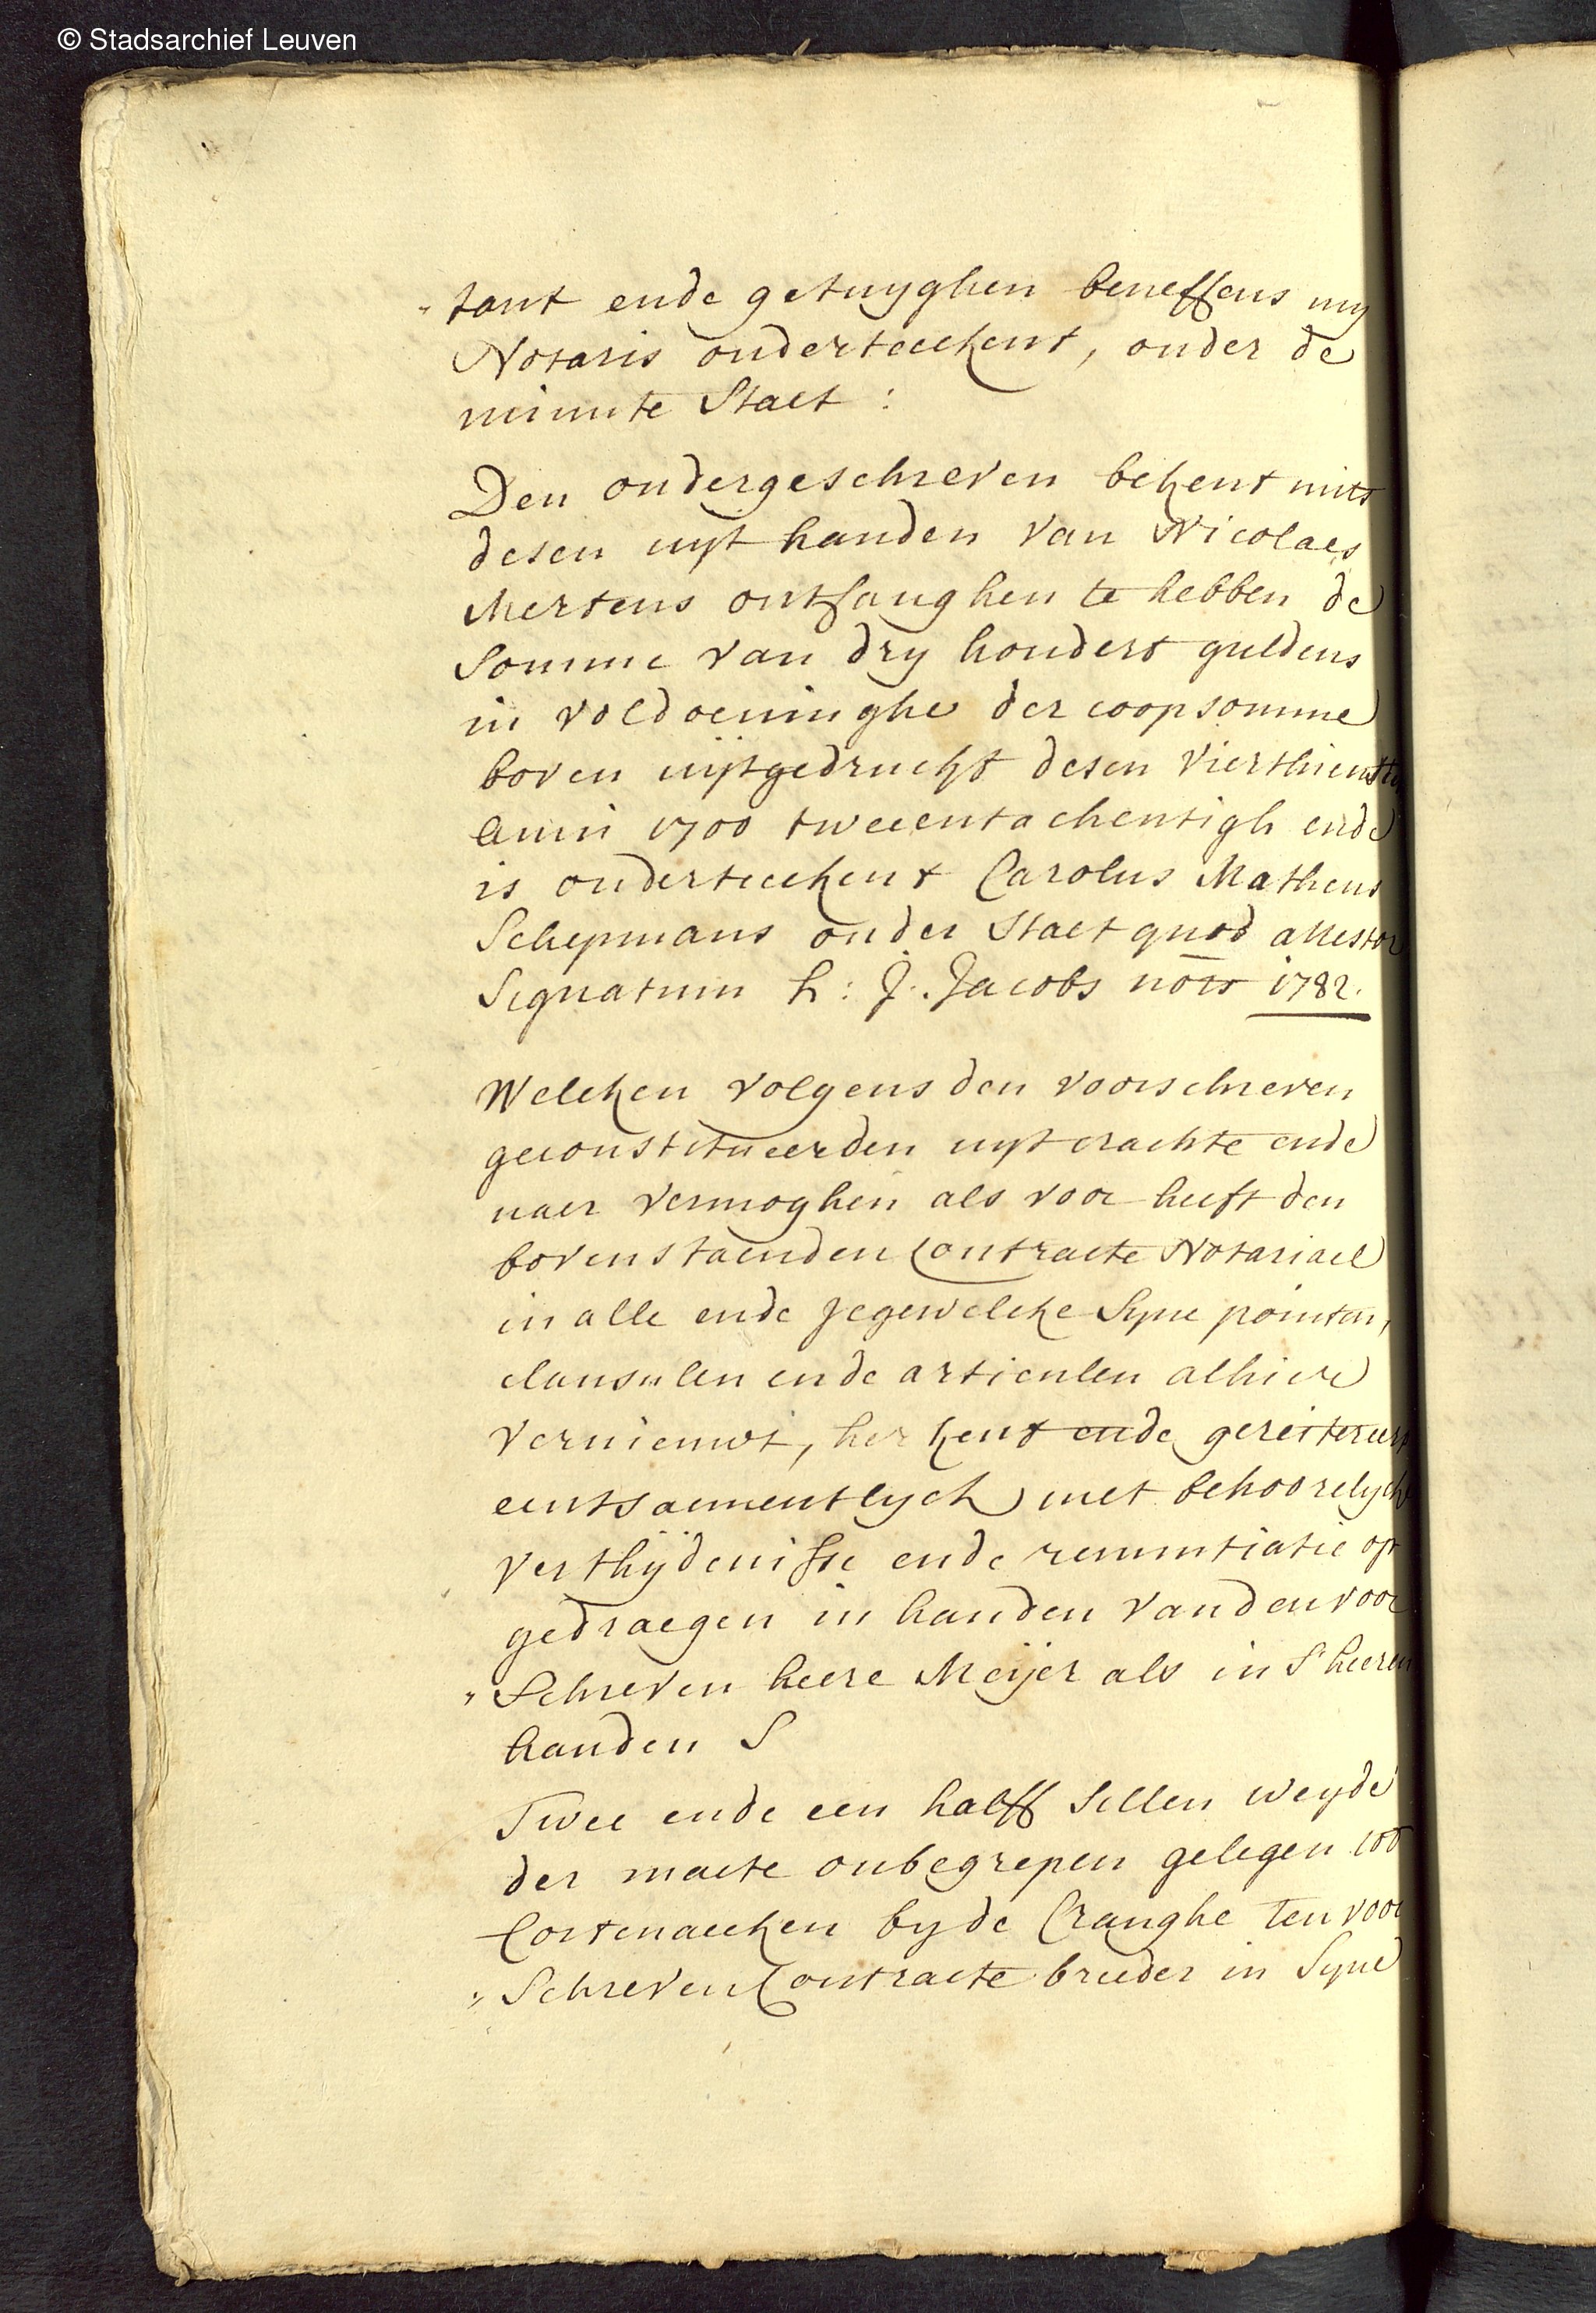 © Stadsarchief Leuven
„ tant ende getuyghen beneffens my
Notaris onderteeckent, onder de
minute Staet :
Den ondergeschreven bekent mits
desen uyt handen van Nicolaes
Mertens ontfanghen te hebben de
Somme van dry hondert guldens
in voldoeninghe der coopsomme
boven uijtgedruckt desen vierthiensten
Anni 1700 tweeentachentigh ende
is onderteeckent Carolus Matheus
Schepmans onder Staet quod attestor
Signatum h: J. Jacobs nōrs 1782.
Welcken volgens den voorschreven
geconstitueerden uyt crachte ende
naer vermoghen als voor heeft den
bovenstaenden Contracte Notariael
in alle ende jegewelcke Syne pointen,
clausulen ende articulen alhier
vernieuwt, herkent ende gereitereert
eentsaementlyck met behoorelycke
verthijdenisse ende renuntiatie op
gedraegen in handen vanden voor
„ Schreven heere Meijer als in S'heeren
handen S
Twee ende een halff sillen weyde
der maete onbegrepen gelegen tot
Cortenaecken by de Cranghe ten voor
„ Schreven Contracte breeder in Syne